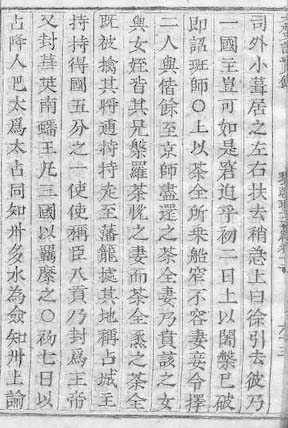 司外小葺居之左右扶去稍急上曰徐引去彼乃
一國主豈可如是窘迫乎初二日上以闍槃已破
即詔班師○上以茶全所乘船窄不容妻妾令擇
二人與偕餘至京師盡還之茶全妻乃賁該之女
與女姪皆其兄槃羅茶悅之妻而茶全烝之茶全
既被擒其將逋持持走至藩籠據其地稱占城主
持持得國五分之一使使稱臣入貢乃封爲王帝
又封華英南蟠王凡三國以羈縻之○初七日以
占降人巴太爲太占同知州多水爲僉知州上諭